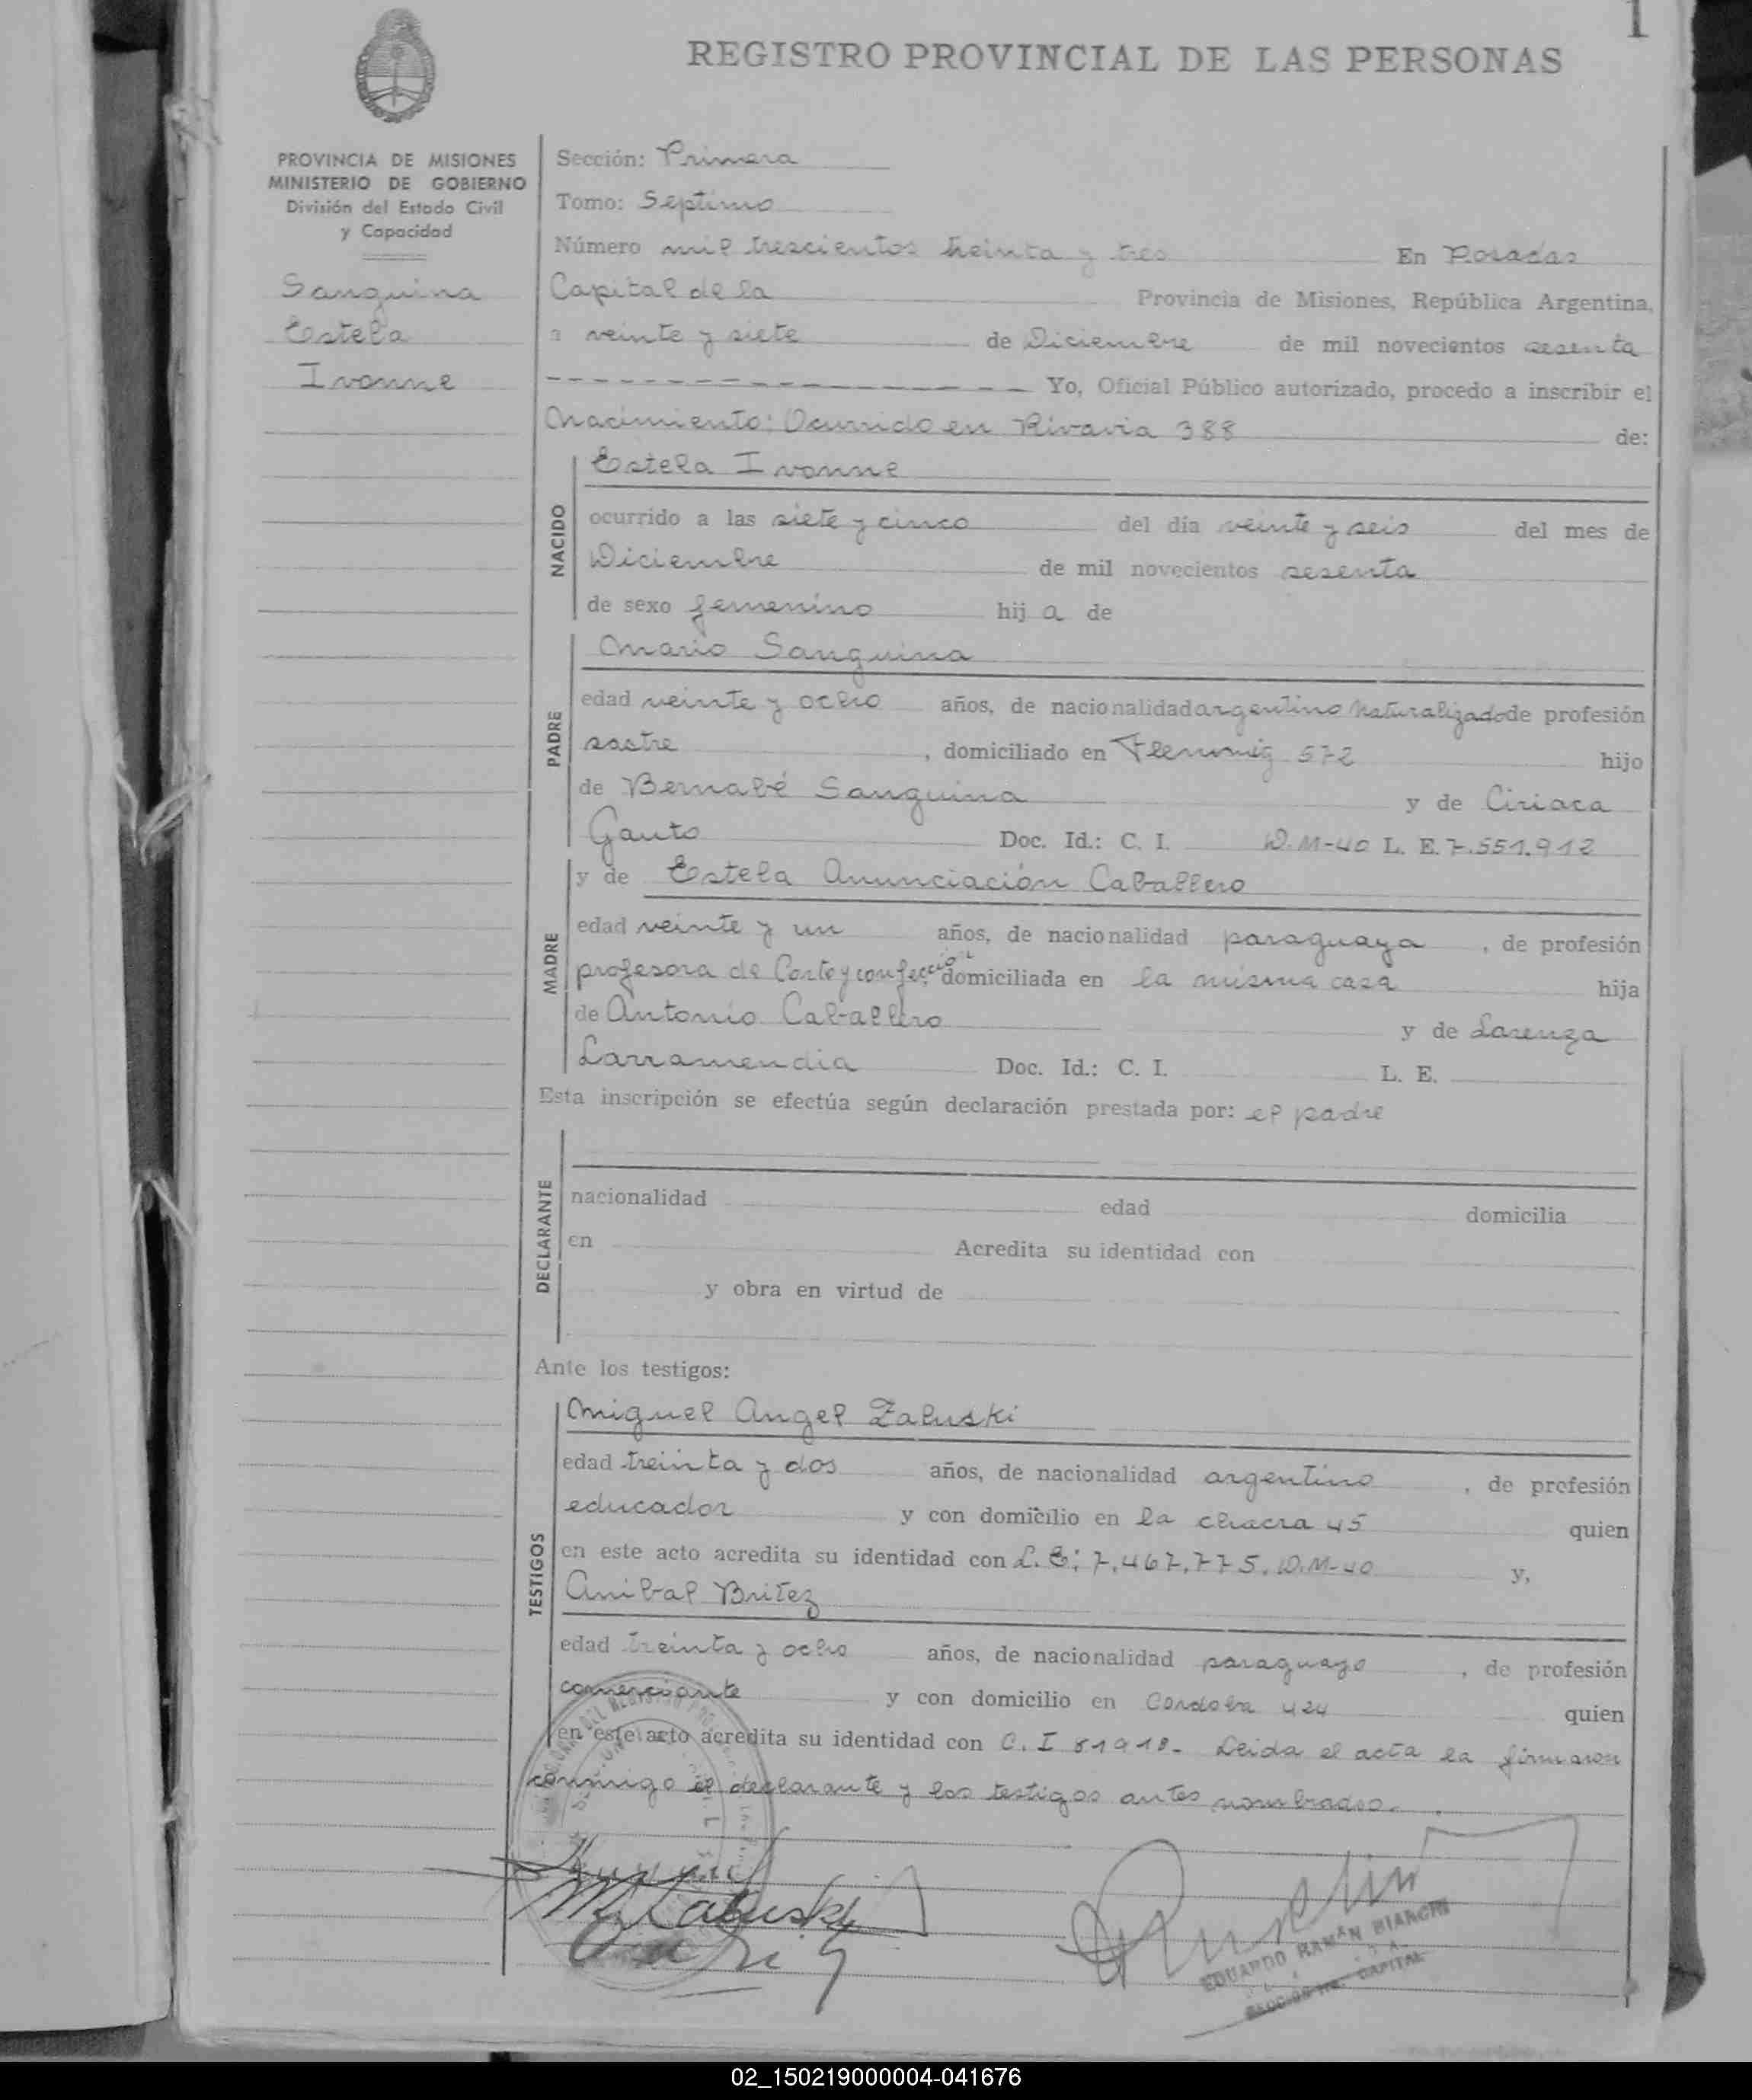 1
REGISTRO PROVINCIAL DE LAS PERSONAS
PROVINCIA DE MISIONES
MINISTERIO DE GOBIERNO
División del Estado Civil
y Capacidad
Sanguina
Estela
Ivonne
Sección: Primera
Tomo: Septimo
Número mil trescientos treinta y tres En Posadas
Capital de la Provincia de Misiones, República Argentina,
a veinte y siete de Diciembre de mil novecientos sesenta
Yo, Oficial Público autorizado, procedo a inscribir el
Nacimiento: Ocurrido en Rivavia 388 de:
NACIDO
Estela Ivonne
ocurrido a las siete y cinco del día veinte y seis del mes de
Diciembre de mil novecientos sesenta
de sexo femenino hij a de
PADRE
Mario Sanguina
edad veinte y ocho años, de nacionalidad argentino naturalizado de profesión
sastre , domiciliado en Flemmig 572 hijo
de Bernabé Sanguina y de Ciriaca
Gauto Doc. Id.: C. I. D.M-40 L. E. 7.551.912
MADRE
y de Estela Anunciación Caballero
edad veinte y un años, de nacionalidad paraguaya , de profesión
profesora de Corte y confección domiciliada en la misma casa hija
de Antonio Caballero y de Larenza
Larramendia Doc. Id.: C. I. L. E.
Esta inscripción se efectúa según declaración prestada por: el padre
DECLARANTE
nacionalidad edad domicilia
en Acredita su identidad con
y obra en virtud de
Ante los testigos:
TESTIGOS
Miguel Angel Zaluski
edad treinta y dos años, de nacionalidad argentino , de profesión
educador y con domicilio en la chacra 45 quien
en este acto acredita su identidad con L.E: 7.467.775. D.M-40 y,
Anibal Britez
edad treinta y ocho años, de nacionalidad paraguayo , de profesión
comerciante y con domicilio en Cordoba 424 quien
en este acto acredita su identidad con C. I 81918.- Leida el acta la firmaron
conmigo el declarante y los testigos antes nombrados.
EDUARDO RAMÓN BIANCHI
CAPITAL
02_150219000004-041676